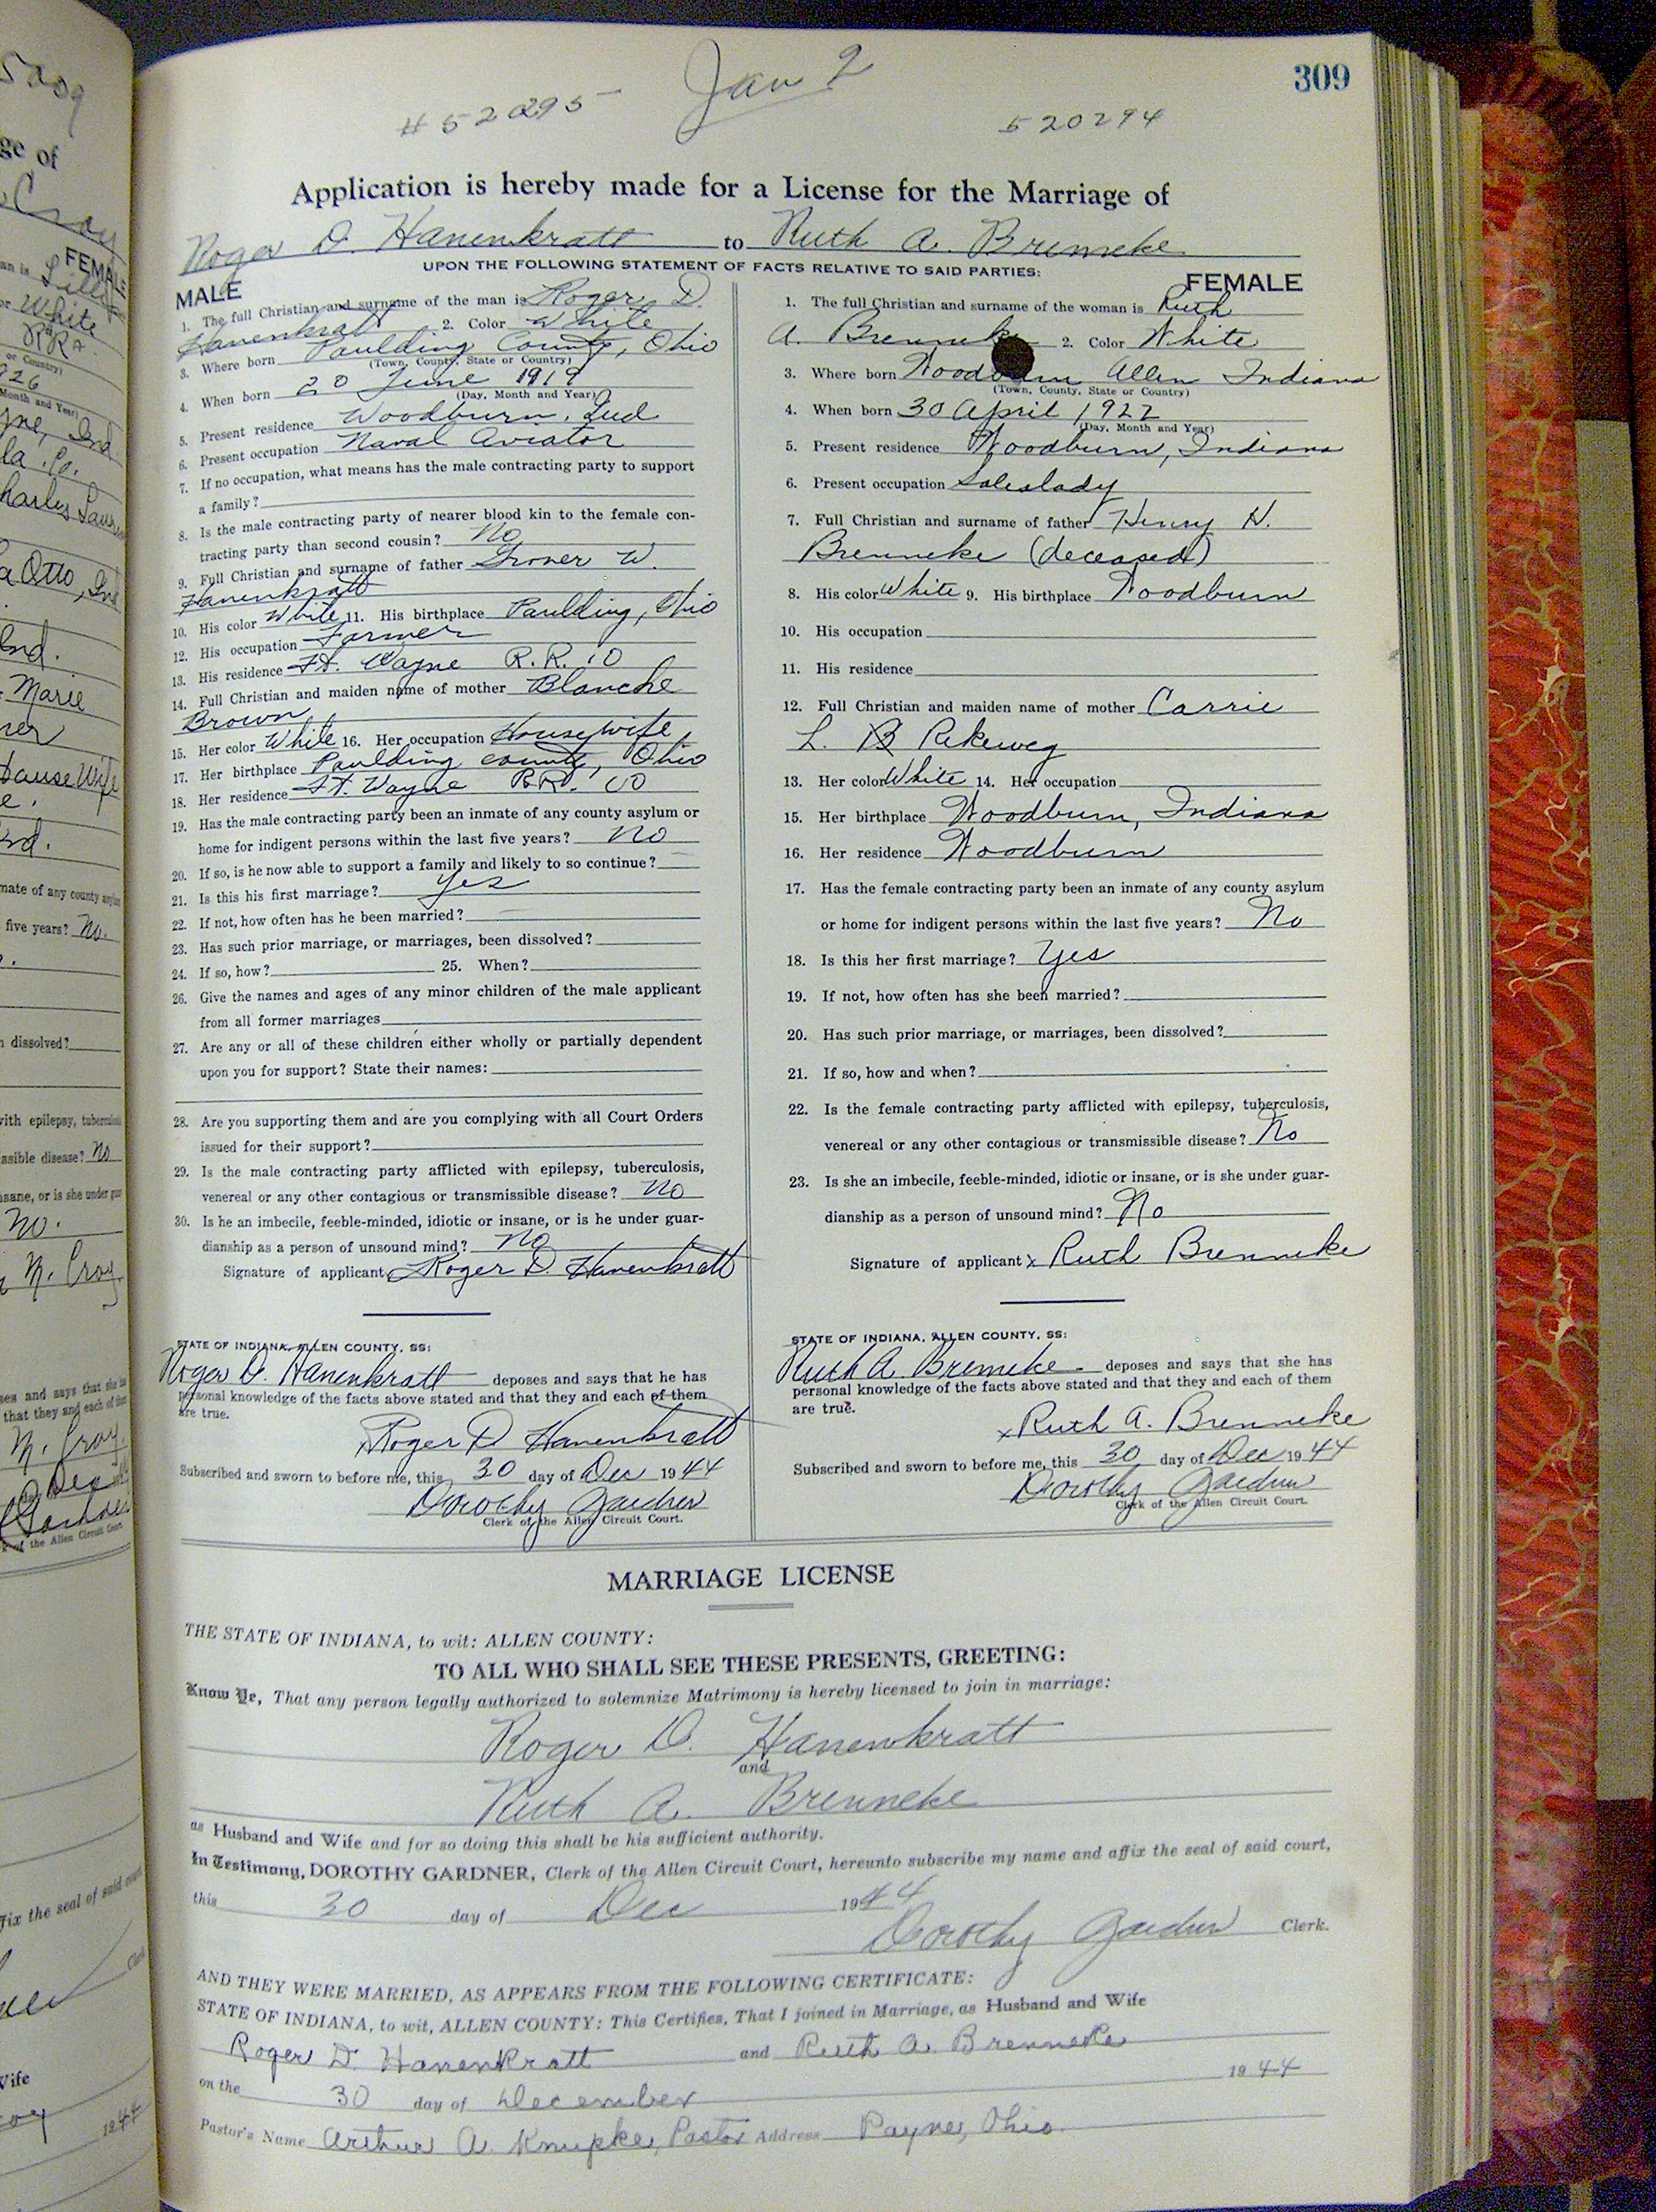 309
Jan 2
#520295
520294
Application is hereby made for a License for the Marriage of
Roger D. Hanenkratt to Ruth A. Brenneke
UPON THE FOLLOWING STATEMENT OF FACTS RELATIVE TO SAID PARTIES:
MALE
1. The full Christian and surname of the man is Roger D.
Hanenkratt 2. Color White
3. Where born Paulding County, Ohio
(Town, County, State or Country)
4. When born 20 June 1919
(Day, Month and Year)
5. Present residence Woodburn, Ind
6. Present occupation Naval Aviator
7. If no occupation, what means has the male contracting party to support
a family?
8. Is the male contracting party of nearer blood kin to the female con-
tracting party than second cousin? No
9. Full Christian and surname of father Grover W.
Hanenkratt
10. His color White 11. His birthplace Paulding, Ohio
12. His occupation Farmer
13. His residence Ft. Wayne R.R. 10
14. Full Christian and maiden name of mother Blanche
Brown
15. Her color White 16. Her occupation Housewife
17. Her birthplace Paulding County, Ohio
18. Her residence Ft. Wayne R.R. 10
19. Has the male contracting party been an inmate of any county asylum or
home for indigent persons within the last five years? No
20. If so, is he now able to support a family and likely to so continue?
21. Is this his first marriage? Yes
22. If not, how often has he been married?
23. Has such prior marriage, or marriages, been dissolved?
24. If so, how? 25. When?
26. Give the names and ages of any minor children of the male applicant
from all former marriages
27. Are any or all of these children either wholly or partially dependent
upon you for support? State their names:
28. Are you supporting them and are you complying with all Court Orders
issued for their support?
29. Is the male contracting party afflicted with epilepsy, tuberculosis,
venereal or any other contagious or transmissible disease? No
30. Is he an imbecile, feeble-minded, idiotic or insane, or is he under guar-
dianship as a person of unsound mind? No
Signature of applicant Roger D. Hanenkratt
STATE OF INDIANA, ALLEN COUNTY, SS:
Roger D. Hanenkratt deposes and says that he has
personal knowledge of the facts above stated and that they and each of them
are true.
x Roger D Hanenkratt
Subscribed and sworn to before me, this 30 day of Dec 1944
Dorothy Gardner
Clerk of the Allen Circuit Court.
FEMALE
1. The full Christian and surname of the woman is Ruth
A. Brenneke 2. Color White
3. Where born Woodburn Allen Indiana
(Town, County, State or Country)
4. When born 30 April 1922
(Day, Month and Year)
5. Present residence Woodburn, Indiana
6. Present occupation Saleslady
7. Full Christian and surname of father Henry H.
Brenneke (deceased)
8. His color White 9. His birthplace Woodburn
10. His occupation
11. His residence
12. Full Christian and maiden name of mother Carrie
L. Rekeweg
13. Her color White 14. Her occupation
15. Her birthplace Woodburn, Indiana
16. Her residence Woodburn
17. Has the female contracting party been an inmate of any county asylum
or home for indigent persons within the last five years? No
18. Is this her first marriage? Yes
19. If not, how often has she been married?
20. Has such prior marriage, or marriages, been dissolved?
21. If so, how and when?
22. Is the female contracting party afflicted with epilepsy, tuberculosis,
venereal or any other contagious or transmissible disease? No
23. Is she an imbecile, feeble-minded, idiotic or insane, or is she under guar-
dianship as a person of unsound mind? No
Signature of applicant x Ruth Brenneke
STATE OF INDIANA, ALLEN COUNTY, SS:
Ruth A. Brenneke deposes and says that she has
personal knowledge of the facts above stated and that they and each of them
are true.
x Ruth A. Brenneke
Subscribed and sworn to before me, this 30 day of Dec 1944
Dorothy Gardner
Clerk of the Allen Circuit Court.
MARRIAGE LICENSE
THE STATE OF INDIANA, to wit: ALLEN COUNTY:
TO ALL WHO SHALL SEE THESE PRESENTS, GREETING:
Know Ye, That any person legally authorized to solemnize Matrimony is hereby licensed to join in marriage:
Roger D. Hanenkratt
and
Ruth A. Brenneke
as Husband and Wife and for so doing this shall be his sufficient authority.
In Testimony, DOROTHY GARDNER, Clerk of the Allen Circuit Court, hereunto subscribe my name and affix the seal of said court,
this 30 day of Dec 1944
Dorothy Gardner Clerk.
AND THEY WERE MARRIED, AS APPEARS FROM THE FOLLOWING CERTIFICATE:
STATE OF INDIANA, to wit, ALLEN COUNTY: This Certifies, That I joined in Marriage, as Husband and Wife
Roger D. Hanenkratt and Ruth A. Brenneke
on the 30 day of December 1944
Pastor's Name Arthur A. Knupke, Pastor Address Payne, Ohio.